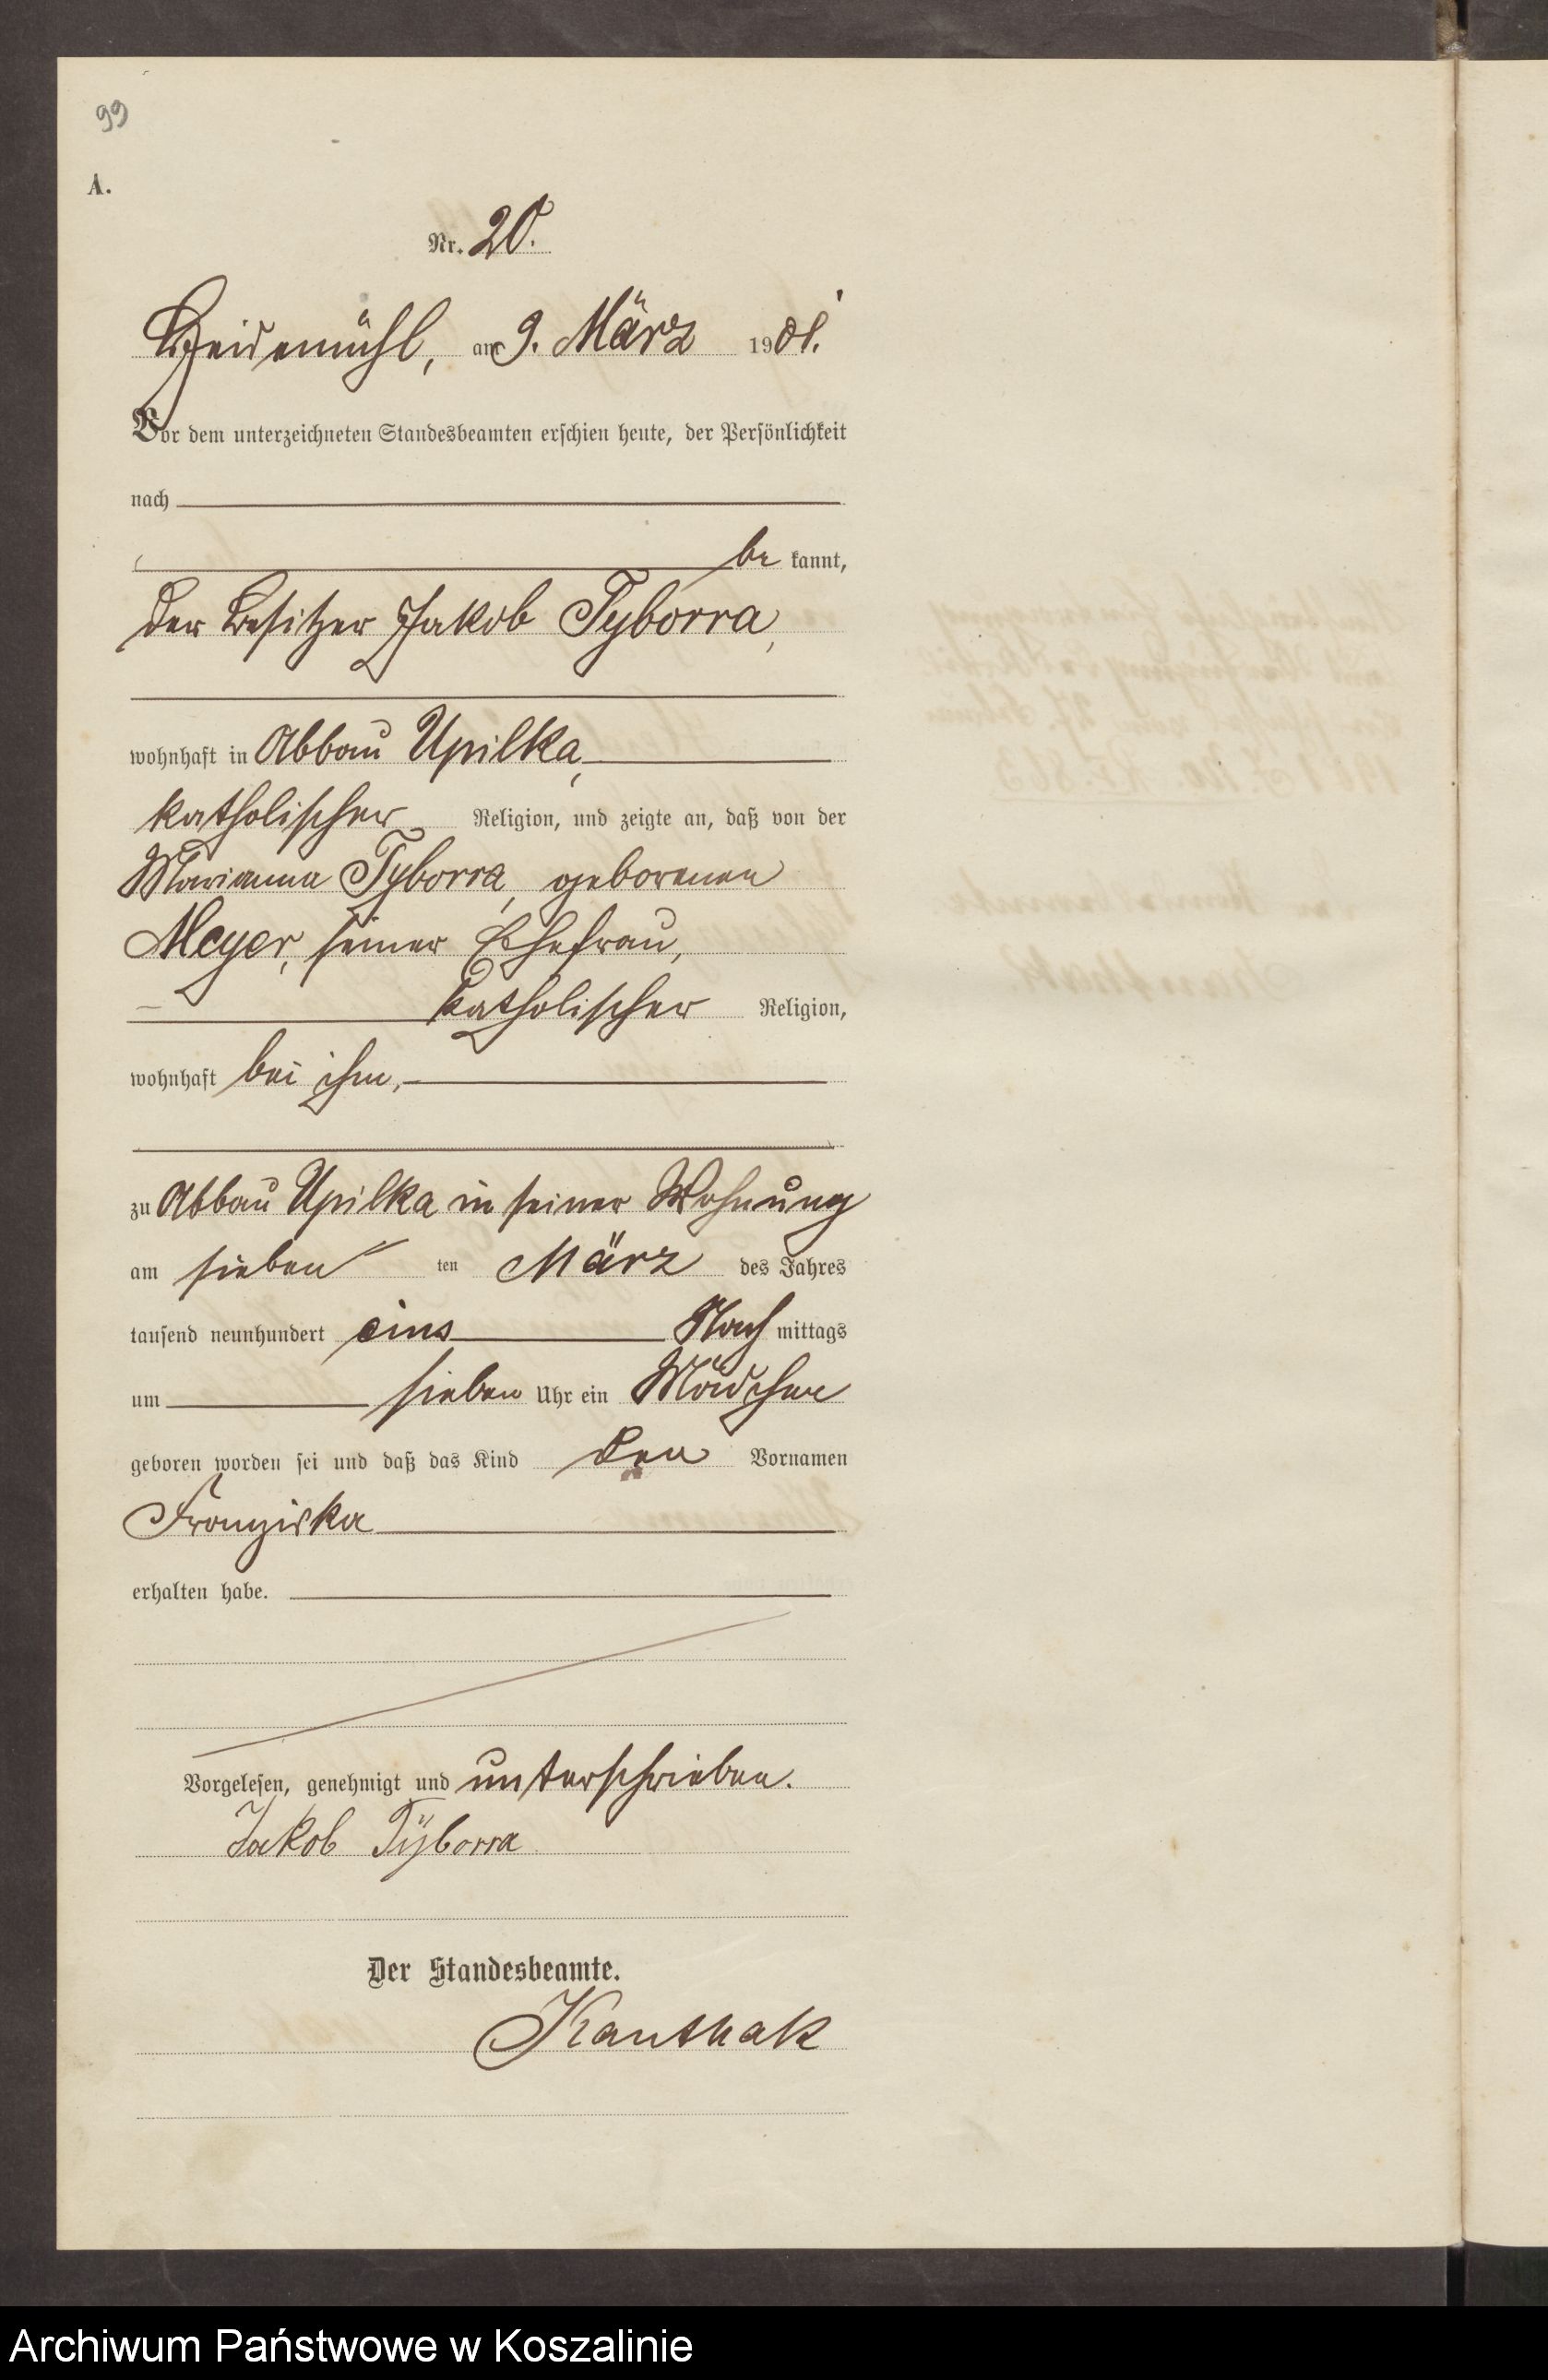 99
A.
Nr. 20.
Heidemühl, am 9. März 1901.
Vor dem unterzeichneten Standesbeamten erschien heute, der Persönlichkeit
nach
be kannt,
der Besitzer Jakob Tyborra,
wohnhaft in Abbau Upilka,
katholischer Religion, und zeigte an, daß von der
Marianna Tyborra, geborenen
Meyer, seiner Ehefrau,
katholischer Religion,
wohnhaft bei ihm,
zu Abbau Upilka in seiner Wohnung
am sieben ten März des Jahres
tausend neunhundert eins Nach mittags
um sieben Uhr ein Mädchen
geboren worden sei und daß das Kind den Vornamen
Franziska
erhalten habe.
Vorgelesen, genehmigt und unterschrieben.
Jakob Tÿborra
Der Standesbeamte.
Kanthak
Archiwum Państwowe w Koszalinie